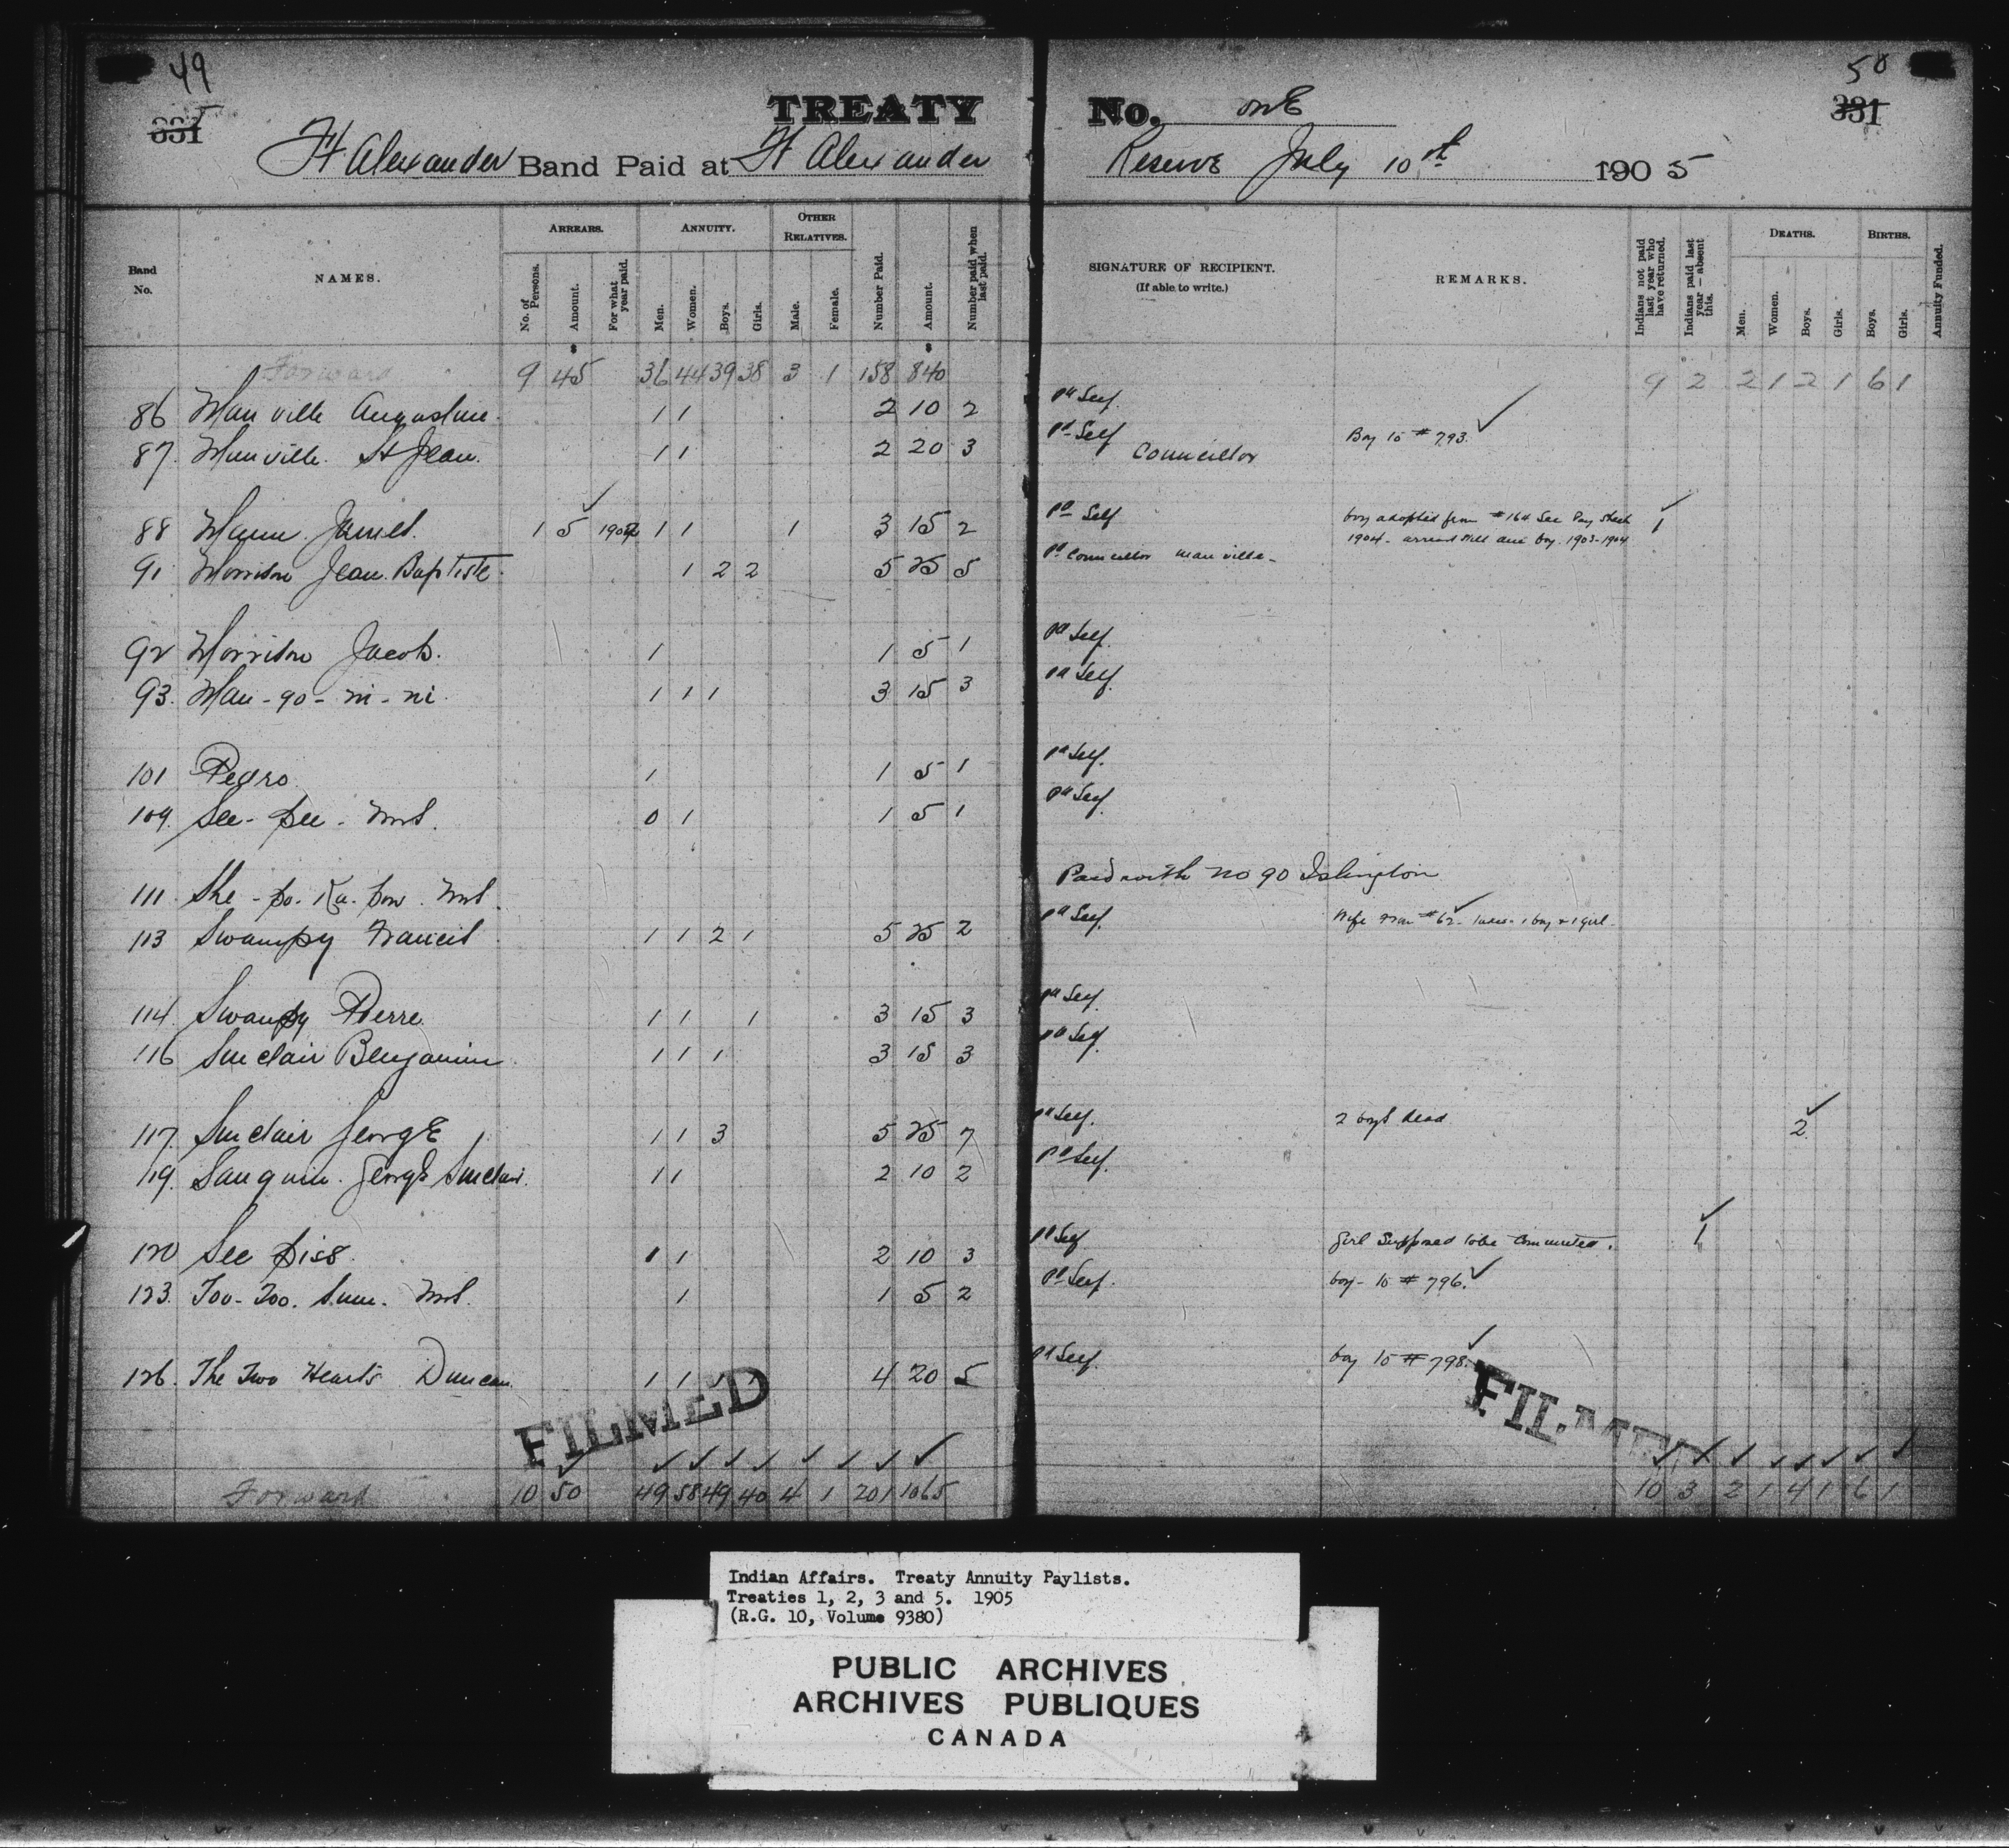 49
331
TREATY
Ft Alexander Band Paid at Ft Alexander
50
331
No. onE
Reserve July 10th 1905
Band No.
NAMES.
ARREARS.
No. of Persons.
Amount.
For what year paid.
ANNUITY.
Men.
Women.
Boys.
Girls.
OTHER RELATIVES.
Male.
Female.
Number Paid.
Amount.
Number paid when last paid.
SIGNATURE OF RECIPIENT.
(If able to write.)
REMARKS.
Indians not paid last year who have returned.
Indians paid last year—absent this.
DEATHS.
Men.
Women.
Boys.
Girls.
BIRTHS.
Boys.
Girls.
Annuity Funded.
$ $
Forward 9 45 36 44 39 38 3 1 158 840 9 2 2 1 2 1 6 1
86 Manville Augustine. 1 1 2 10 2 pd Self.
87. Manville. St Jean. 1 1 2 20 3 pd Self Councillor Boy to # 793. ✓
88 Mann James. 1 5 ✓ 1904 1 1 1 3 15 2 pd Self boy adopted from #164 See Pay Sheet 1 ✓
1904 - arrears still due boy. 1903-1904
91 Morrison Jean. Baptiste. 1 2 2 5 25 5 pd Councillor Manville -
92 Morrison Jacob. 1 1 5 1 pd Self.
93. Man-go-ni-ni. 1 1 1 3 15 3 pd Self.
101 Pedro 1 1 5 1 pd Self.
109. See-pee-Mrs. 0 1 1 5 1 pd Self.
111. She-po-Ka-pow. Mrs. Paid with No 90 Islington
113 Swampy Francis 1 1 2 1 5 25 2 pd Self. Wife from #62 ✓ - 1 boy & 1 girl.
114. Swampy Pierre. 1 1 1 3 15 3 pd Self.
116 Sinclair Benjamin. 1 1 1 3 15 3 pd Self.
117. Sinclair GeorgE 1 1 3 5 25 7 pd Self. 2 boys dead 2 ✓
119. Sanguin. GeorgE Sinclair. 1 1 2 10 2 pd Self.
120 See piss. 1 1 2 10 3 pd Self Girl Supposed to be Commuted. 1 ✓
123. Too-Too. Sum. Mrs. 1 1 5 2 pd Self. boy - to # 796. ✓
126. The Two Hearts Duncan. 1 1 1 1 4 20 5 pd Self. boy to # 798. ✓
FILMED
FILMED
Forward 10 50 49 58 49 40 4 1 201 1065 10 3 2 1 4 1 6 1
Indian Affairs. Treaty Annuity Paylists.
Treaties 1, 2, 3 and 5. 1905
(R.G. 10, Volume 9380)
PUBLIC ARCHIVES
ARCHIVES PUBLIQUES
CANADA